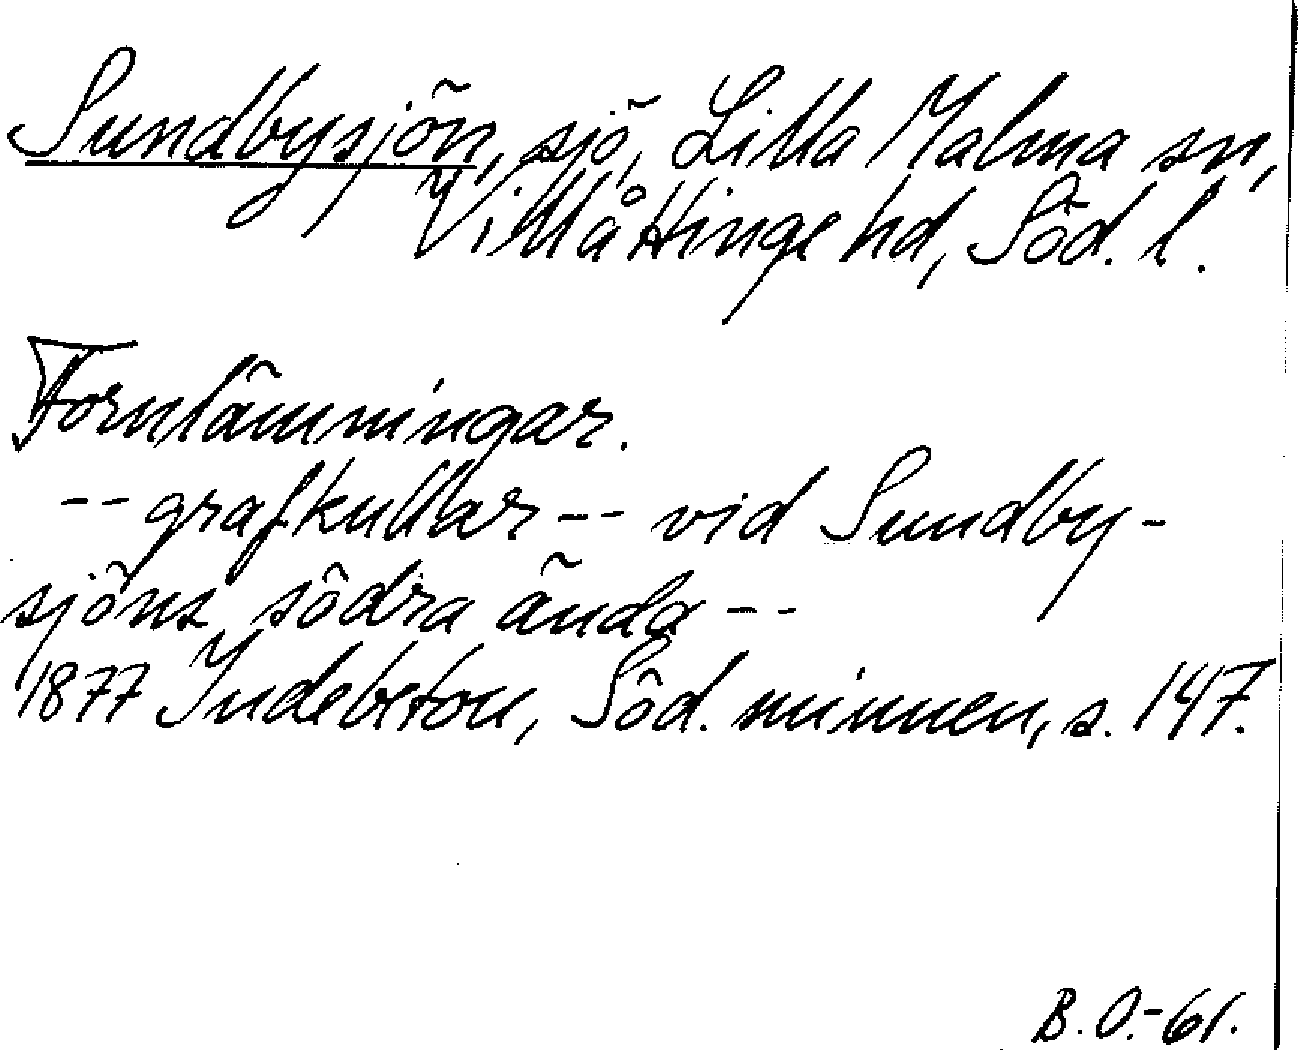 Sundbysjön, sjö, Lilla Malma sn,
Villåttinge hd, Söd. l.
Fornlämningar.
-- grafkullar -- vid Sundby-
sjöns södra ända --
1877 Indebetou, Söd. minnen, s. 147.
B. O.-61.